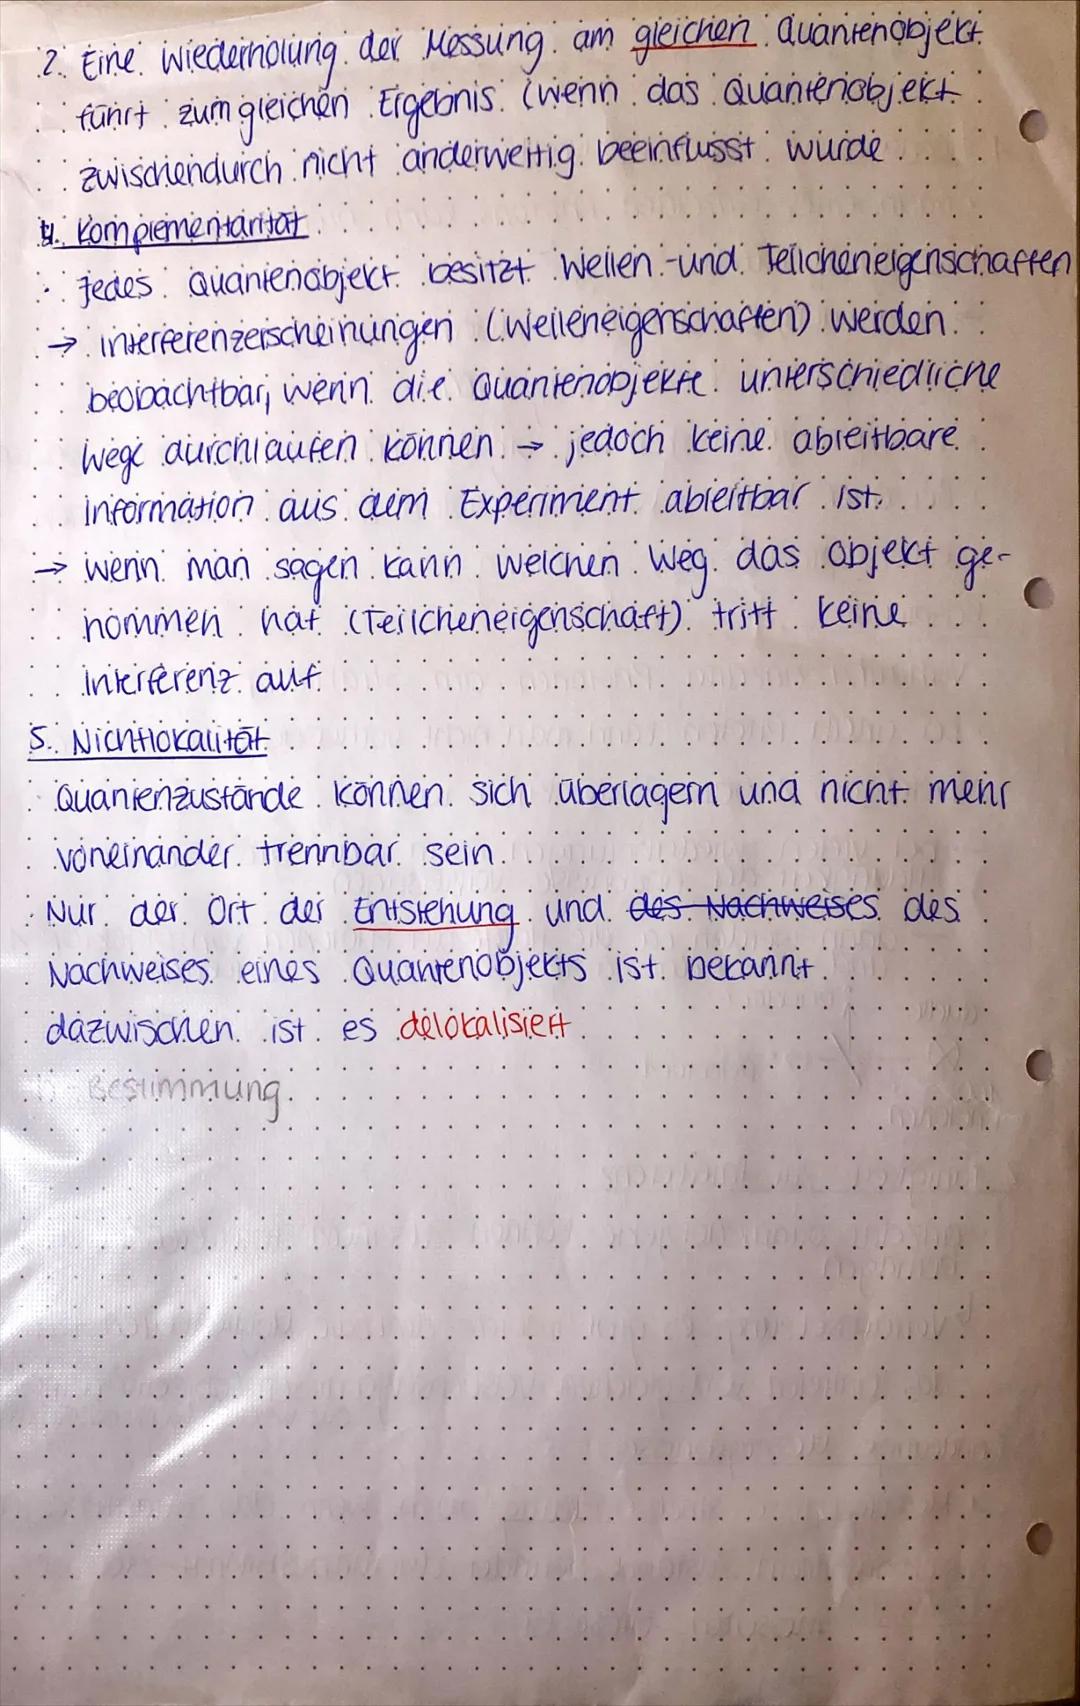 2. Eine Wiederholung der Messung am gleichen Quantenobjekt
führt zum gleichen Ergebnis (wenn das Quantenobjekt
zwischendurch nicht anderweitig beeinflusst wurde
4. Komplementarität
Jedes Quantenobjekt besitzt Wellen- und Teilcheneigenschaften
→ Interferenzerscheinungen (Welleneigenschaften) werden
beobachtbar, wenn die Quantenobjekte unterschiedliche
Wege durchlaufen können → jedoch keine ableitbare
Information aus dem Experiment ableitbar ist.
→ wenn man sagen kann welchen Weg das Objekt ge-
nommen hat (Teilcheneigenschaft) tritt keine
Interferenz auf.
5. Nichtlokalität
Quantenzustände können sich überlagern und nicht mehr
voneinander trennbar sein.
Nur der Ort der Entstehung und des Nachweises des
Nachweises eines Quantenobjekts ist bekannt.
dazwischen ist es delokalisiert.
Bestimmung